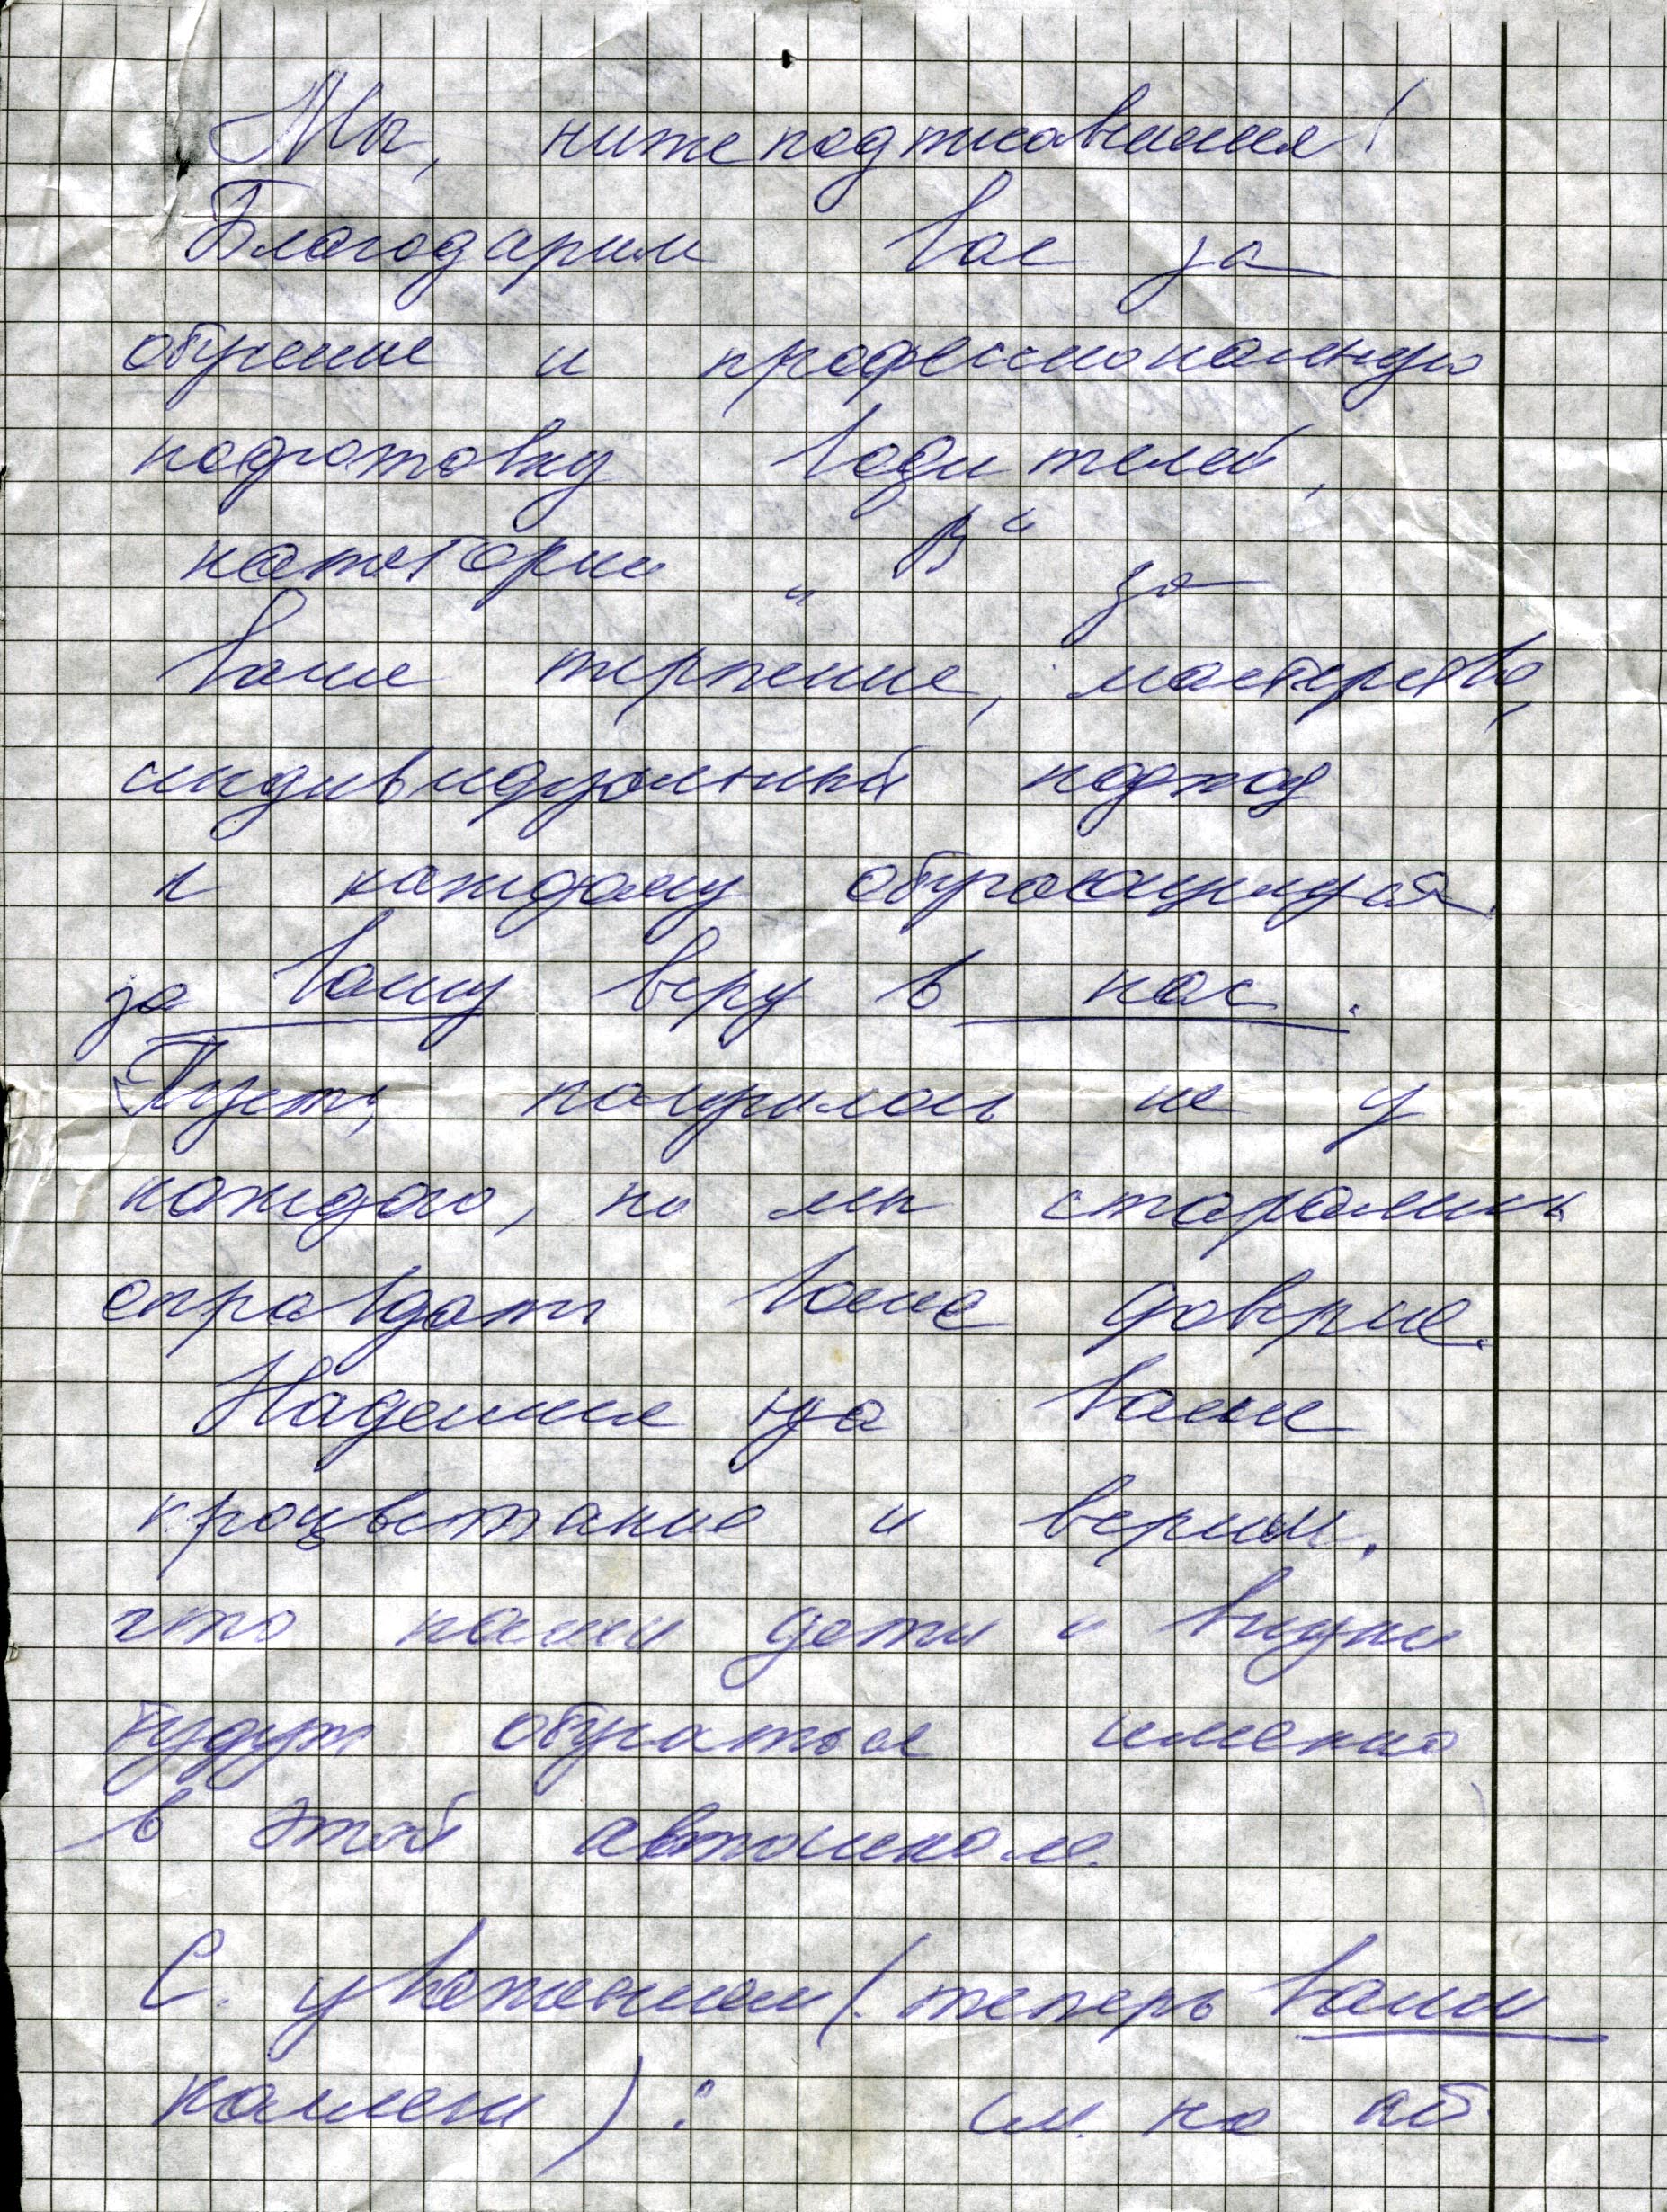 Мы, нижеподписавшиеся!
Благодарим Вас за
обучение и профессиональную
подготовку водителей,
категории „В“ за
Ваше терпение, мастерство,
индивидуальный подход
к каждому обучающемуся.
за Вашу веру в нас.
Пусть, получилось не у
каждого, но мы старались
оправдать Ваше доверие.
Надеемся на Ваше
процветание и верим,
что наши дети и внуки
будут обучаться именно
в этой автошколе.
С. уважением (теперь Ваши
коллеги): см. на об